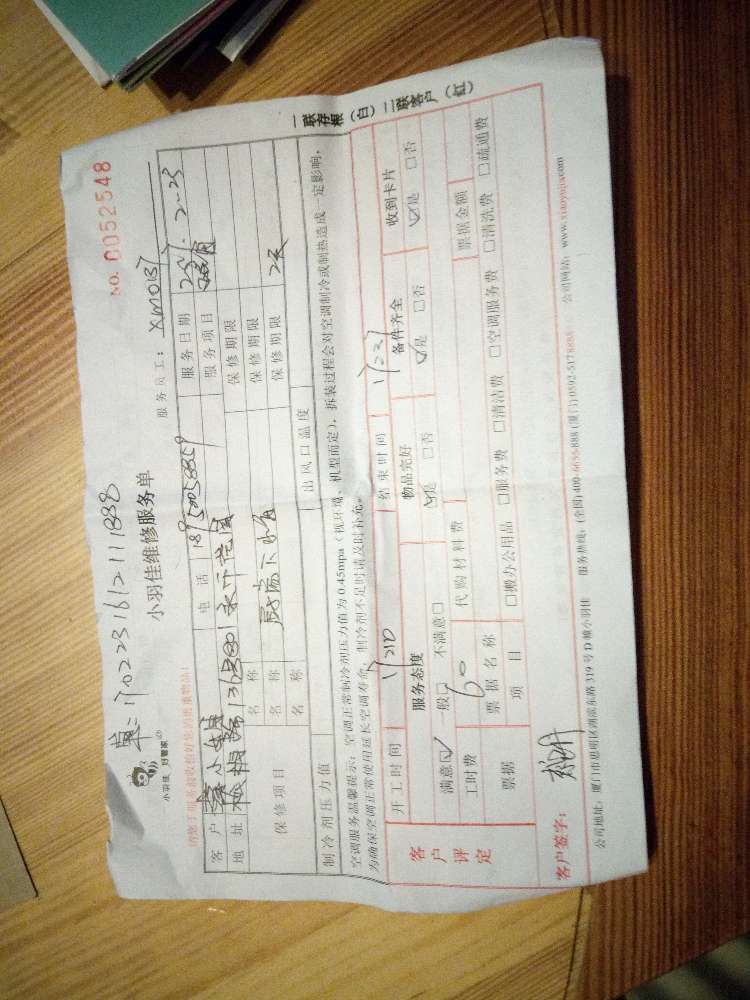 NO. 0052548
单:1702231612111838
小羽佳维修服务单
小羽佳,好管家
服务员工: XM0137
请您于服务前收拾好您的贵重物品!
客户 小姐 电话 服务日期 2-23
地址 服务项目
保修项目 名称 保修期限
名称 厨房下水管 保修期限
名称 保修期限 2天
制冷剂压力值 出风口温度
空调服务温馨提示:空调正常制冷剂压力值为0.45mpa(视环境、机型而定),拆装过程会对空调制冷或制热造成一定影响,
为确保空调正常使用延长空调寿命,制冷剂不足时请及时补充。
客户评定
开工时间 1/210 结束时间 1/227
服务态度 物品完好 备件齐全 收到卡片
满意☑ 一般□ 不满意□ ☑是 □否 ☑是 □否 ☑是 □否
工时费 60 代购材料费 票据金额
票据 票据名称
项目 □搬办公用品 □服务费 □清洁费 □空调服务费 □清洗费 □疏通费
客户签字:
公司地址:厦门市思明区湖滨东路319号D幢小羽佳 服务热线:(全国)400-6655-888 (厦门)0592-5178888 公司网站:www.xiaoyujia.com
一联存根(白)二联客户(红)